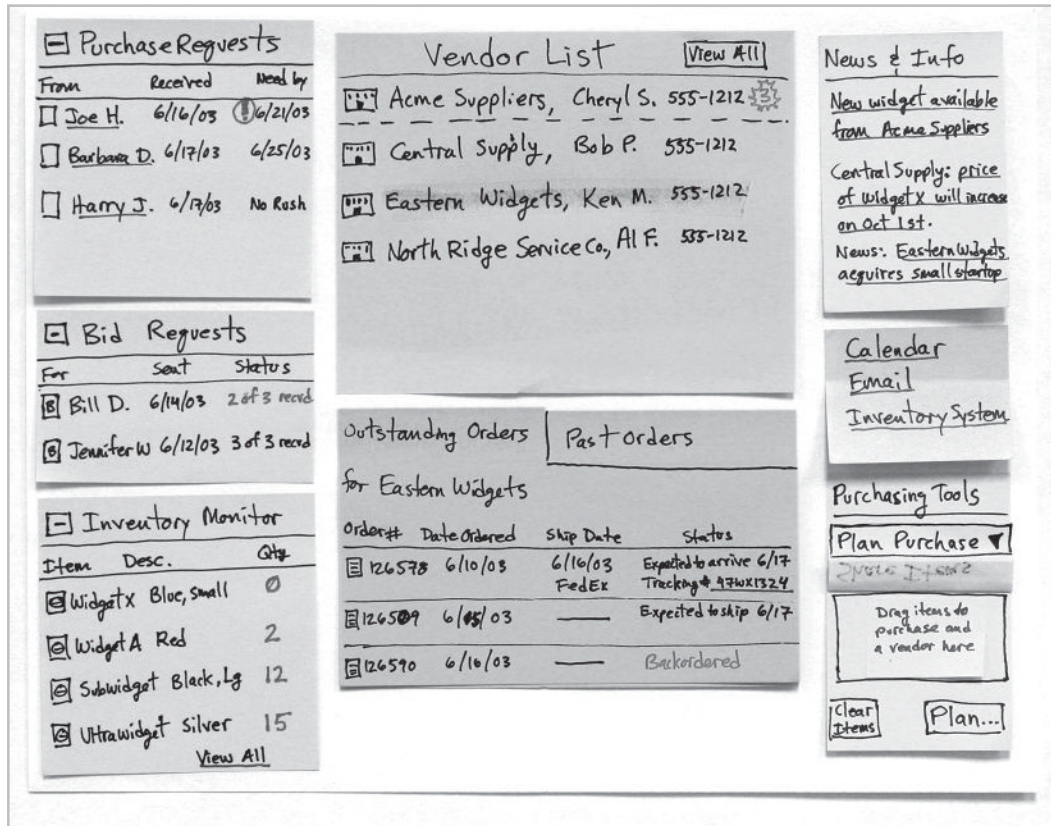 Purchase Requests
From Received Need by
Joe H. 6/16/03 ! 6/21/03
Barbara D. 6/17/03 6/25/03
Harry J. 6/17/03 No Rush
Bid Requests
For Sent Status
B Bill D. 6/14/03 2 of 3 recvd
B Jennifer W 6/12/03 3 of 3 recvd
Inventory Monitor
Item Desc. Qty
Widget X Blue, small 0
Widget A Red 2
Subwidget Black, Lg 12
Ultrawidget Silver 15
View All
Vendor List View All
Acme Suppliers, Cheryl S. 555-1212 3
Central Supply, Bob P. 555-1212
Eastern Widgets, Ken M. 555-1212
North Ridge Service Co., Al F. 555-1212
Outstanding Orders Past orders
for Eastern Widgets
Order# Date Ordered Ship Date Status
126578 6/10/03 6/16/03 Expected to arrive 6/17
FedEx Tracking# 97WX1324
126589 6/15/03 — Expected to ship 6/17
126590 6/16/03 — Backordered
News & Info
New widget available
from Acme Suppliers
Central Supply: price
of Widget X will increase
on Oct 1st.
News: Eastern Widgets
acquires small startup
Calendar
Email
Inventory System
Purchasing Tools
Plan Purchase ▼
Drag items to
purchase and
a vendor here
Clear
Items
Plan...